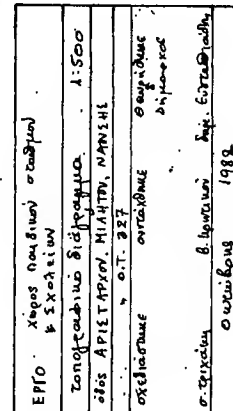 ΕΡΓΟ χώρος παιδικού σταθμού
& Σχολείων
τοπογραφικό διάγραμμα 1:500
οδός ΑΡΙΣΤΑΡΧΟΥ. ΜΙΛΗΤΟΥ, ΝΑΝΣΗΣ
Ο.Τ. 227
σχεδιάστηκε συντάχθηκε θεωρήθηκε
Δήμαρχος
σ. τριχάκη δημ. Ευσταθιάδης
οκτώβρης 1982